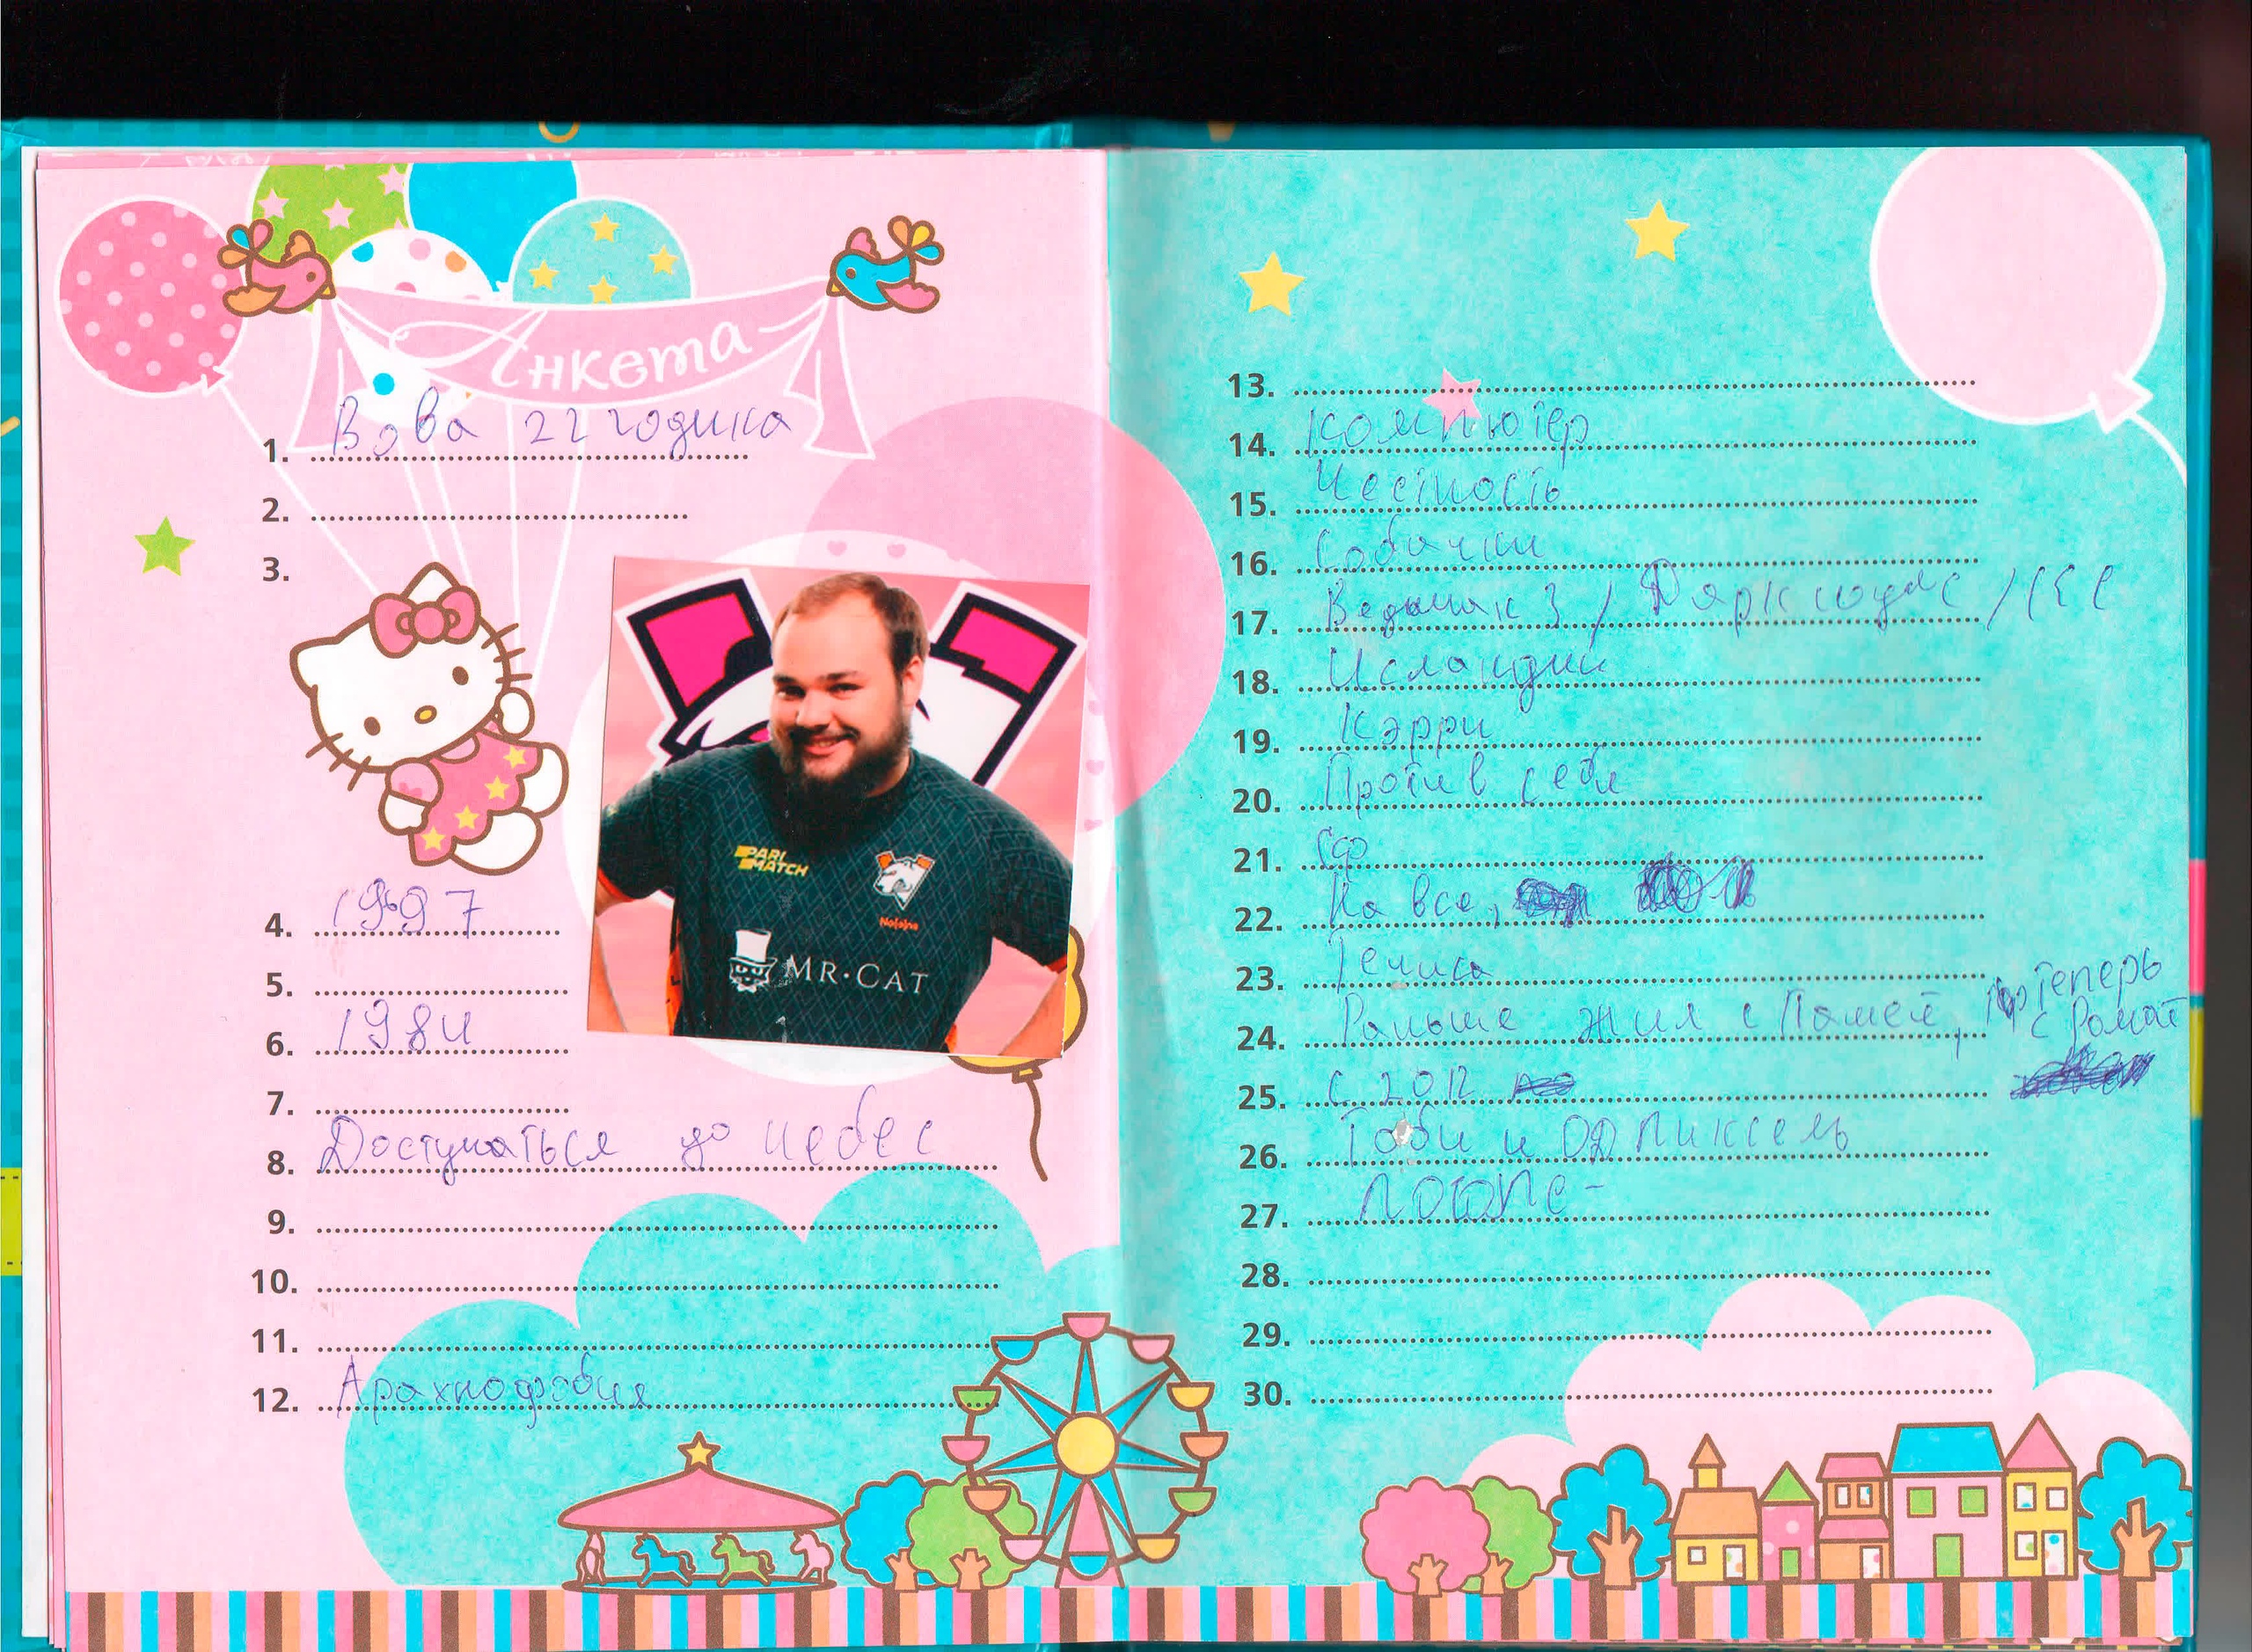 Анкета
1. Вова 22 годика
2.
3.
PARI MATCH
No[o]ne
MR·CAT
4. 1997
5.
6. 1984
7.
8. Достучаться до небес
9.
10.
11.
12. Арахнофобия
13.
14. Компьютер
15. Честность
16. Собачки
17. Ведьмак 3 / Дарк соулс / КС
18. Исландии
19. Кэрри
20. Против себя
21. Сф
22. На все,
23. Гечика
24. Раньше жил с Пашей, теперь с Ромой
25. С 2012
26. Тоби и ОД Пиксель
27.
28.
29.
30.